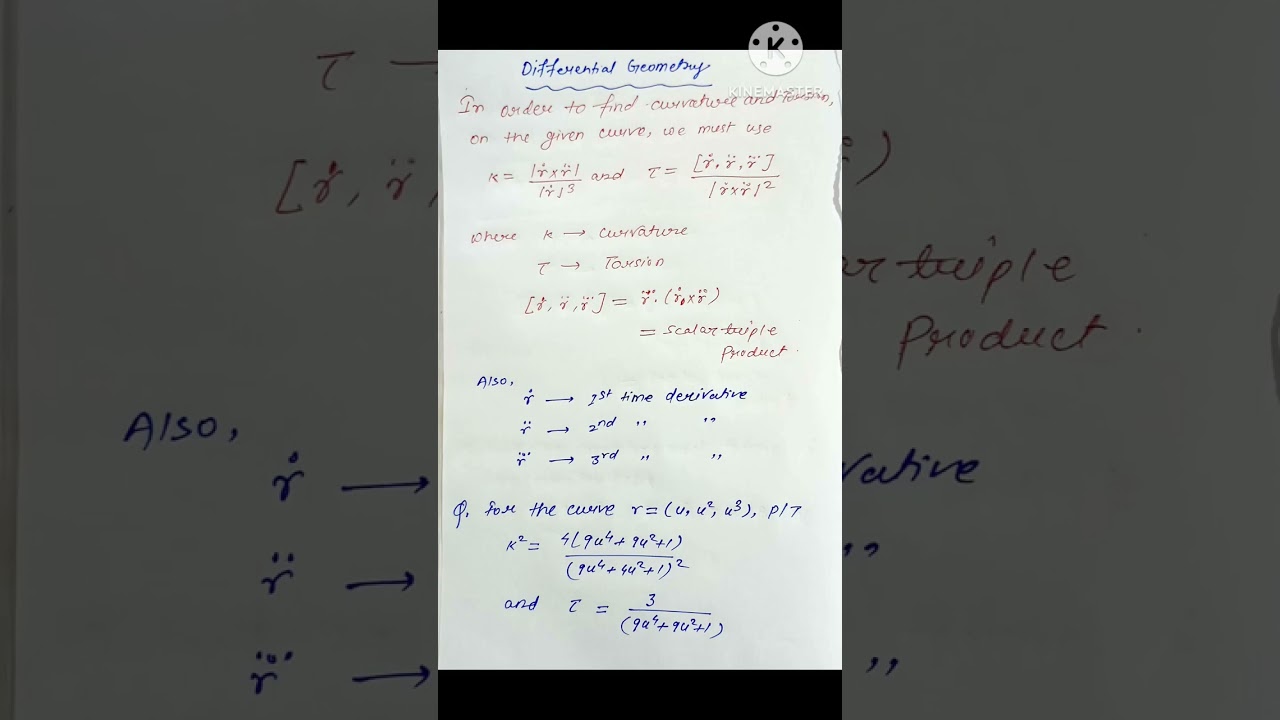 Differential Geometry
K
KINEMASTER
In order to find curvature and Torsion,
on the given curve, we must use
κ = |ṙ×r̈| / |ṙ|³ and τ = [ṙ, r̈, r⃛] / |ṙ×r̈|²
where κ → curvature
τ → Torsion
[ṙ, r̈, r⃛] = r⃛. (ṙ×r̈)
= scalar triple
Product.
Also,
ṙ → 1st time derivative
r̈ → 2nd ,, ,,
r⃛ → 3rd ,, ,,
Q. for the curve r = (u, u², u³), P/T
κ² = 4(9u⁴+9u²+1) / (9u⁴+4u²+1)²
and τ = 3 / (9u⁴+9u²+1)